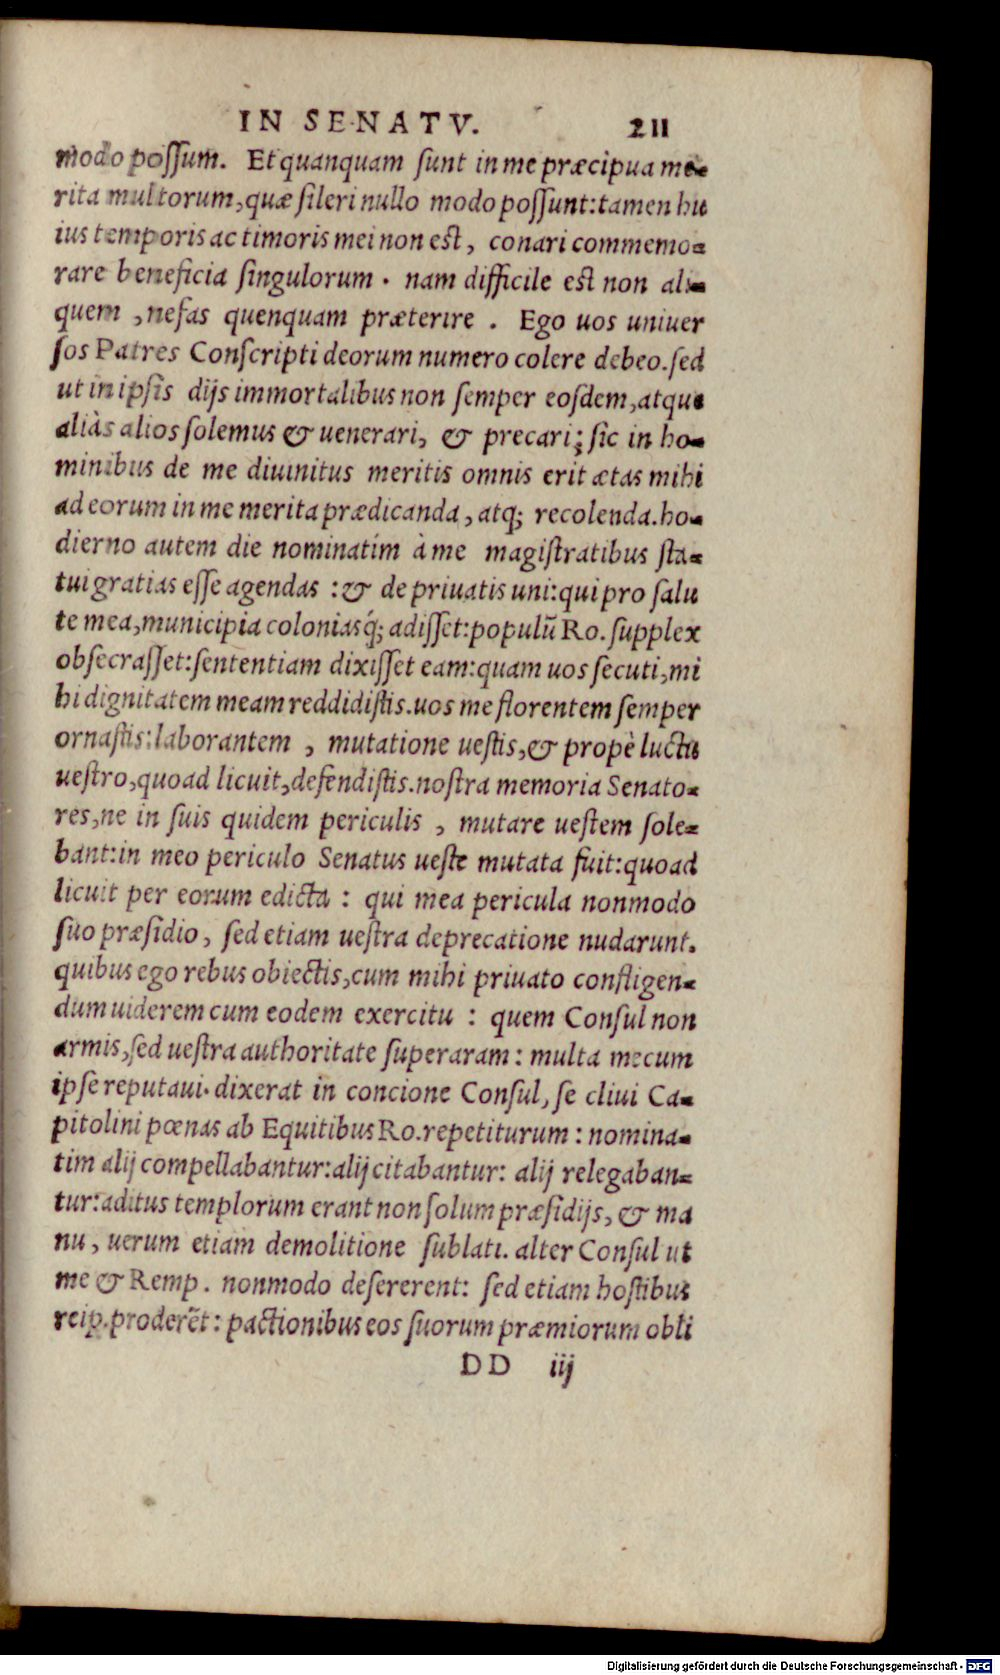 IN SENATV. 211
modo possum. Et quanquam sunt in me præcipua me-
rita multorum, quæ sileri nullo modo possunt: tamen hu
ius temporis ac timoris mei non est, conari commemo-
rare beneficia singulorum. nam difficile est non ali-
quem, nefas quenquam præterire. Ego uos uniuer
sos Patres Conscripti deorum numero colere debeo. sed
ut in ipsis dijs immortalibus non semper eosdem, atque
aliàs alios solemus & uenerari, & precari; sic in ho-
minibus de me diuinitus meritis omnis erit ætas mihi
ad eorum in me merita prædicanda, atq; recolenda. ho-
dierno autem die nominatim à me magistratibus sta-
tui gratias esse agendas: & de priuatis uni: qui pro salu
te mea, municipia coloniasq́; adisset: populũ Ro. supplex
obsecrasset: sententiam dixisset eam: quam uos secuti, mi
hi dignitatem meam reddidistis. uos me florentem semper
ornastis: laborantem, mutatione uestis, & propè luctu
uestro, quoad licuit, defendistis. nostra memoria Senato-
res, ne in suis quidem periculis, mutare uestem sole-
bant: in meo periculo Senatus ueste mutata fuit: quoad
licuit per eorum edicta: qui mea pericula nonmodo
suo præsidio, sed etiam uestra deprecatione nudarunt.
quibus ego rebus obiectis, cum mihi priuato confligen-
dum uiderem cum eodem exercitu: quem Consul non
armis, sed uestra authoritate superaram: multa mecum
ipse reputaui. dixerat in concione Consul, se cliui Ca-
pitolini pœnas ab Equitibus Ro. repetiturum: nomina-
tim alij compellabantur: alij citabantur: alij relegaban-
tur: aditus templorum erant non solum præsidijs, & ma
nu, uerum etiam demolitione sublati. alter Consul ut
me & Remp. nonmodo desererent: sed etiam hostibus
reip. proderẽt: pactionibus eos suorum præmiorum obli
DD iij
Digitalisierung gefördert durch die Deutsche Forschungsgemeinschaft - DFG